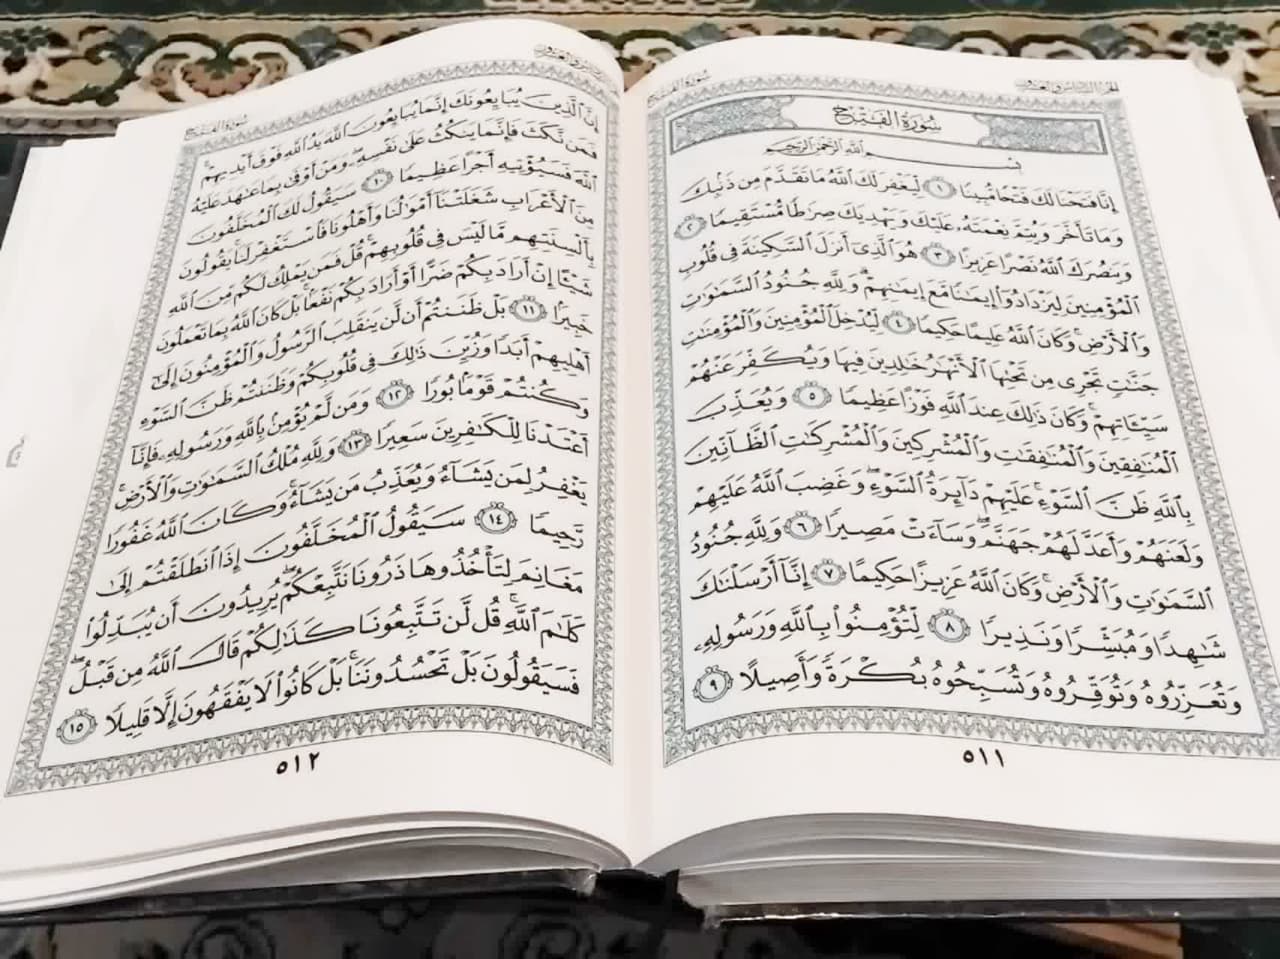 الجزء السادس والعشرون
سورة الفتح
سورة الفتح
بسم الله الرحمن الرحيم
إِنَّا فَتَحْنَا لَكَ فَتْحًا مُّبِينًا ١ لِّيَغْفِرَ لَكَ اللَّهُ مَا تَقَدَّمَ مِن ذَنۢبِكَ
وَمَا تَأَخَّرَ وَيُتِمَّ نِعْمَتَهُۥ عَلَيْكَ وَيَهْدِيَكَ صِرَٰطًا مُّسْتَقِيمًا ٢
وَيَنصُرَكَ اللَّهُ نَصْرًا عَزِيزًا ٣ هُوَ الَّذِىٓ أَنزَلَ السَّكِينَةَ فِى قُلُوبِ
الْمُؤْمِنِينَ لِيَزْدَادُوٓا۟ إِيمَٰنًا مَّعَ إِيمَٰنِهِمْ ۗ وَلِلَّهِ جُنُودُ السَّمَٰوَٰتِ
وَالْأَرْضِ ۚ وَكَانَ اللَّهُ عَلِيمًا حَكِيمًا ٤ لِّيُدْخِلَ الْمُؤْمِنِينَ وَالْمُؤْمِنَٰتِ
جَنَّٰتٍ تَجْرِى مِن تَحْتِهَا الْأَنْهَٰرُ خَٰلِدِينَ فِيهَا وَيُكَفِّرَ عَنْهُمْ
سَيِّـَٔاتِهِمْ ۚ وَكَانَ ذَٰلِكَ عِندَ اللَّهِ فَوْزًا عَظِيمًا ٥ وَيُعَذِّبَ
الْمُنَٰفِقِينَ وَالْمُنَٰفِقَٰتِ وَالْمُشْرِكِينَ وَالْمُشْرِكَٰتِ الظَّآنِّينَ
بِاللَّهِ ظَنَّ السَّوْءِ ۚ عَلَيْهِمْ دَآئِرَةُ السَّوْءِ ۖ وَغَضِبَ اللَّهُ عَلَيْهِمْ
وَلَعَنَهُمْ وَأَعَدَّ لَهُمْ جَهَنَّمَ ۖ وَسَآءَتْ مَصِيرًا ٦ وَلِلَّهِ جُنُودُ
السَّمَٰوَٰتِ وَالْأَرْضِ ۚ وَكَانَ اللَّهُ عَزِيزًا حَكِيمًا ٧ إِنَّآ أَرْسَلْنَٰكَ
شَٰهِدًا وَمُبَشِّرًا وَنَذِيرًا ٨ لِّتُؤْمِنُوا۟ بِاللَّهِ وَرَسُولِهِۦ
وَتُعَزِّرُوهُ وَتُوَقِّرُوهُ وَتُسَبِّحُوهُ بُكْرَةً وَأَصِيلًا ٩
٥١١
الجزء السادس والعشرون
سورة الفتح
إِنَّ الَّذِينَ يُبَايِعُونَكَ إِنَّمَا يُبَايِعُونَ اللَّهَ يَدُ اللَّهِ فَوْقَ أَيْدِيهِمْ ۚ
فَمَن نَّكَثَ فَإِنَّمَا يَنكُثُ عَلَىٰ نَفْسِهِۦ ۖ وَمَنْ أَوْفَىٰ بِمَا عَٰهَدَ عَلَيْهُ
اللَّهَ فَسَيُؤْتِيهِ أَجْرًا عَظِيمًا ١٠ سَيَقُولُ لَكَ الْمُخَلَّفُونَ
مِنَ الْأَعْرَابِ شَغَلَتْنَآ أَمْوَٰلُنَا وَأَهْلُونَا فَاسْتَغْفِرْ لَنَا ۚ يَقُولُونَ
بِأَلْسِنَتِهِم مَّا لَيْسَ فِى قُلُوبِهِمْ ۚ قُلْ فَمَن يَمْلِكُ لَكُم مِّنَ اللَّهِ
شَيْـًٔا إِنْ أَرَادَ بِكُمْ ضَرًّا أَوْ أَرَادَ بِكُمْ نَفْعًۢا ۚ بَلْ كَانَ اللَّهُ بِمَا تَعْمَلُونَ
خَبِيرًۢا ١١ بَلْ ظَنَنتُمْ أَن لَّن يَنقَلِبَ الرَّسُولُ وَالْمُؤْمِنُونَ إِلَىٰٓ
أَهْلِيهِمْ أَبَدًا وَزُيِّنَ ذَٰلِكَ فِى قُلُوبِكُمْ وَظَنَنتُمْ ظَنَّ السَّوْءِ
وَكُنتُمْ قَوْمًۢا بُورًا ١٢ وَمَن لَّمْ يُؤْمِنۢ بِاللَّهِ وَرَسُولِهِۦ فَإِنَّآ
أَعْتَدْنَا لِلْكَٰفِرِينَ سَعِيرًا ١٣ وَلِلَّهِ مُلْكُ السَّمَٰوَٰتِ وَالْأَرْضِ ۚ
يَغْفِرُ لِمَن يَشَآءُ وَيُعَذِّبُ مَن يَشَآءُ ۚ وَكَانَ اللَّهُ غَفُورًا
رَّحِيمًا ١٤ سَيَقُولُ الْمُخَلَّفُونَ إِذَا انطَلَقْتُمْ إِلَىٰ
مَغَانِمَ لِتَأْخُذُوهَا ذَرُونَا نَتَّبِعْكُمْ ۖ يُرِيدُونَ أَن يُبَدِّلُوا۟
كَلَٰمَ اللَّهِ ۚ قُل لَّن تَتَّبِعُونَا كَذَٰلِكُمْ قَالَ اللَّهُ مِن قَبْلُ ۖ
فَسَيَقُولُونَ بَلْ تَحْسُدُونَنَا ۚ بَلْ كَانُوا۟ لَا يَفْقَهُونَ إِلَّا قَلِيلًا ١٥
٥١٢